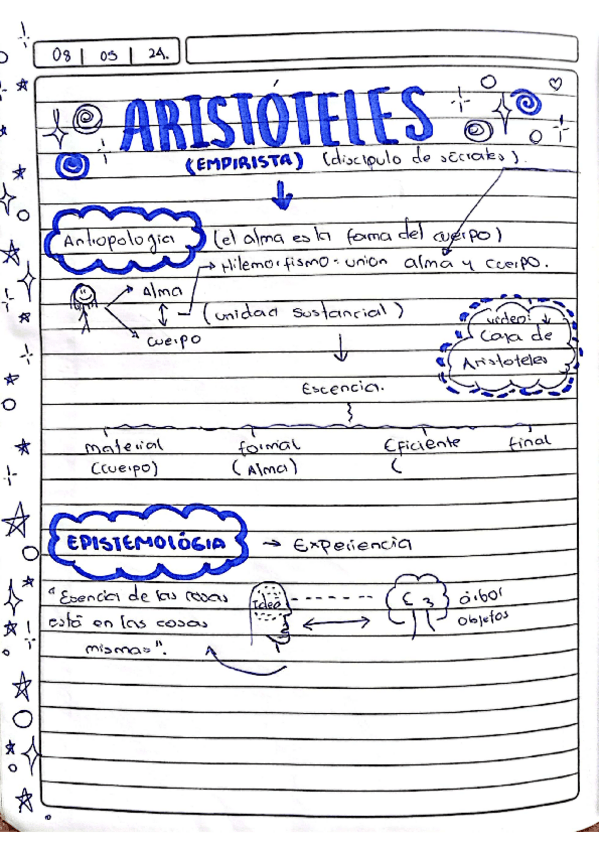 08 | 05 | 24.
ARISTÓTELES
(EMPIRISTA) (discípulo de sócrates).
Antropologia (el alma es la forma del cuerpo)
Hilemorfismo: union alma y cuerpo.
Alma
(unidad sustancial)
cuerpo
video: ↓
Casa de
Aristoteles
Escencia.
material formal Eficiente final
(cuerpo) (Alma) (
EPISTEMOLÓGIA → Experiencia
"Esencia de las cosas
está en las cosas
mismas".
Idea
árbol
objetos